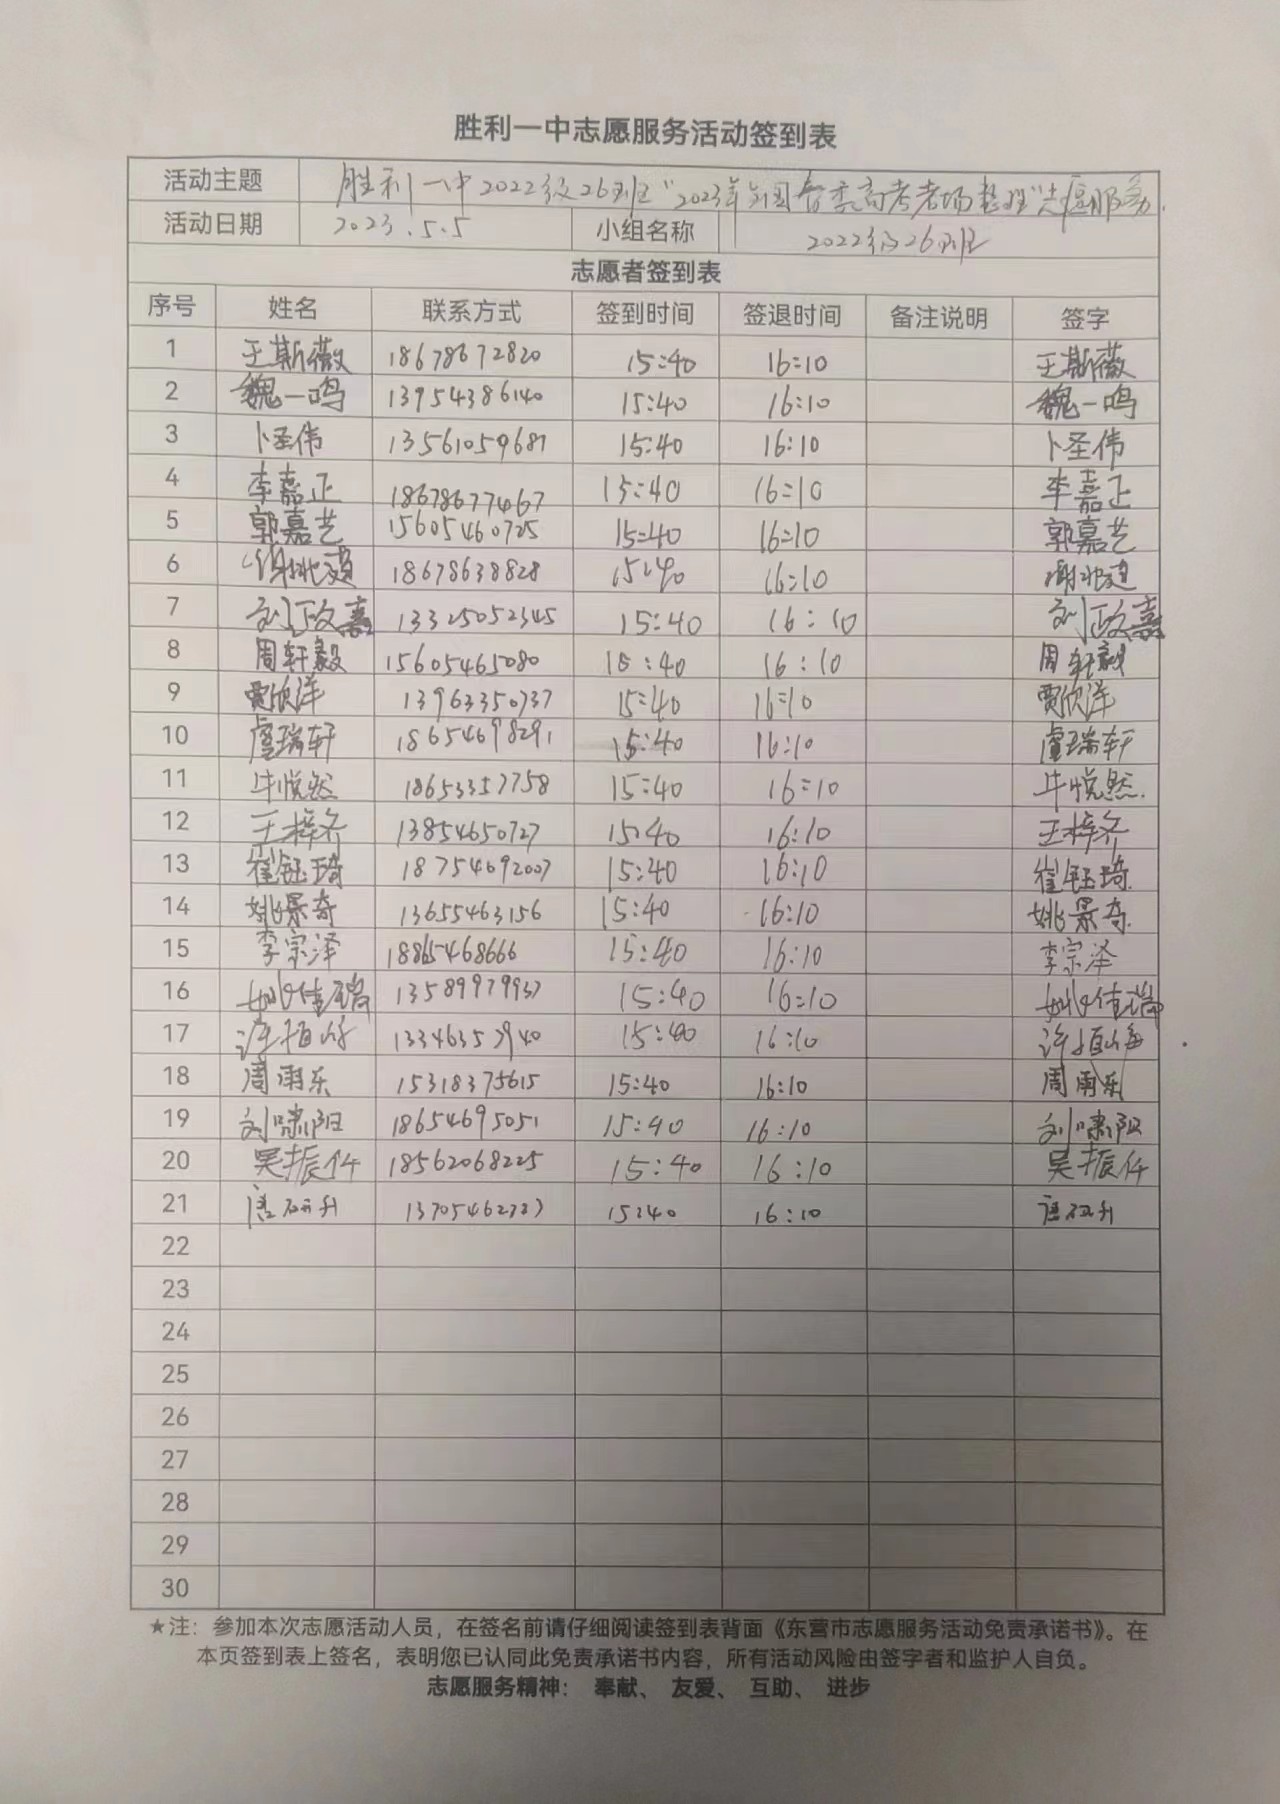 胜利一中志愿服务活动签到表
活动主题 胜利一中2022级26班"2023年全国春季高考考场整理"志愿服务.
活动日期 2023.5.5 小组名称 2022级26班
志愿者签到表
序号 姓名 联系方式 签到时间 签退时间 备注说明 签字
1 王斯薇 18678672820 15:40 16:10 王斯薇
2 魏一鸣 13954386140 15:40 16:10 魏一鸣
3 卜圣伟 13561059681 15:40 16:10 卜圣伟
4 李嘉正 18678677467 15:40 16:10 李嘉正
5 郭嘉艺 15605460725 15:40 16:10 郭嘉艺
6 18678638828 15:40 16:10
7 刘政嘉 13325052345 15:40 16:10 刘政嘉
8 周轩毅 15605465080 15:40 16:10 周轩毅
9 贾欣洋 13963350737 15:40 16:10 贾欣洋
10 卢瑞轩 18654698291 15:40 16:10 卢瑞轩
11 牛悦然 18653357758 15:40 16:10 牛悦然.
12 王梓齐 13854650727 15:40 16:10 王梓齐
13 崔钰琦 18754692007 15:40 16:10 崔钰琦.
14 姚景奇 13655463156 15:40 16:10 姚景奇.
15 李宗泽 18865468666 15:40 16:10 李宗泽
16 姚佳瑞 13589979937 15:40 16:10 姚佳瑞
17 15:40 16:10
18 周雨乐 15318375615 15:40 16:10 周雨乐
19 刘啸阳 18654695051 15:40 16:10 刘啸阳
20 吴振仟 18562068225 15:40 16:10 吴振仟
21 15:40 16:10
22
23
24
25
26
27
28
29
30
★注：参加本次志愿活动人员，在签名前请仔细阅读签到表背面《东营市志愿服务活动免责承诺书》。在
本页签到表上签名，表明您已认同此免责承诺书内容，所有活动风险由签字者和监护人自负。
志愿服务精神： 奉献、 友爱、 互助、 进步